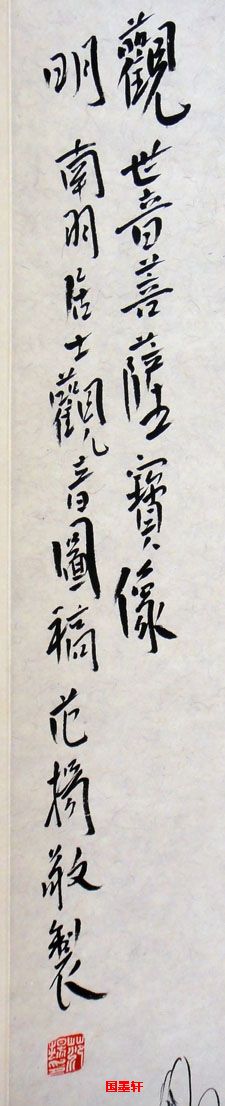 觀世音菩薩寶像
明南羽居士觀音圖稿范揚敬製
范揚
国墨轩